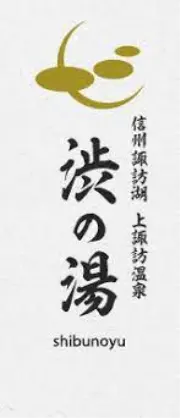 信州諏訪湖 上諏訪温泉
渋の湯
shibunoyu